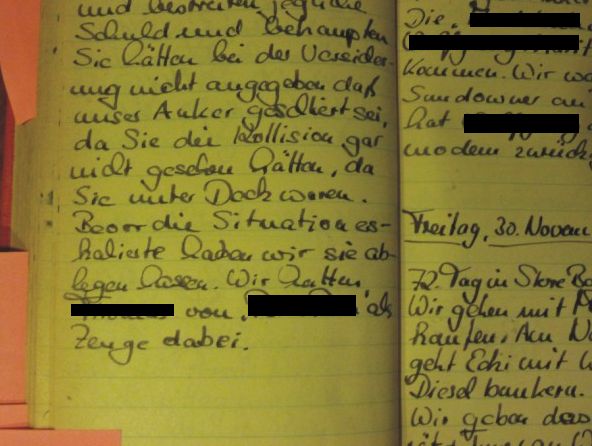 und bestreiten jegliche
Schuld und behaupten
Sie hätten bei der
ung nicht angegeben daß
unser Anker gesliert sei,
da Sie die Kollision gar
nicht gesehen hätten, da
Sie unter Deck waren.
Bevor die Situation es-
kalierte haben wir sie ab-
legen lasen. Wir hatten
von als
Zeuge dabei.
Die
kommen. Wir
Sundowner
hat
modem zurück
Freitag, 30. Novem
72. Tag in
Wir gehen mit
kaufen. Am
geht Ecki mit
Diesel bunkern.
Wir geben das